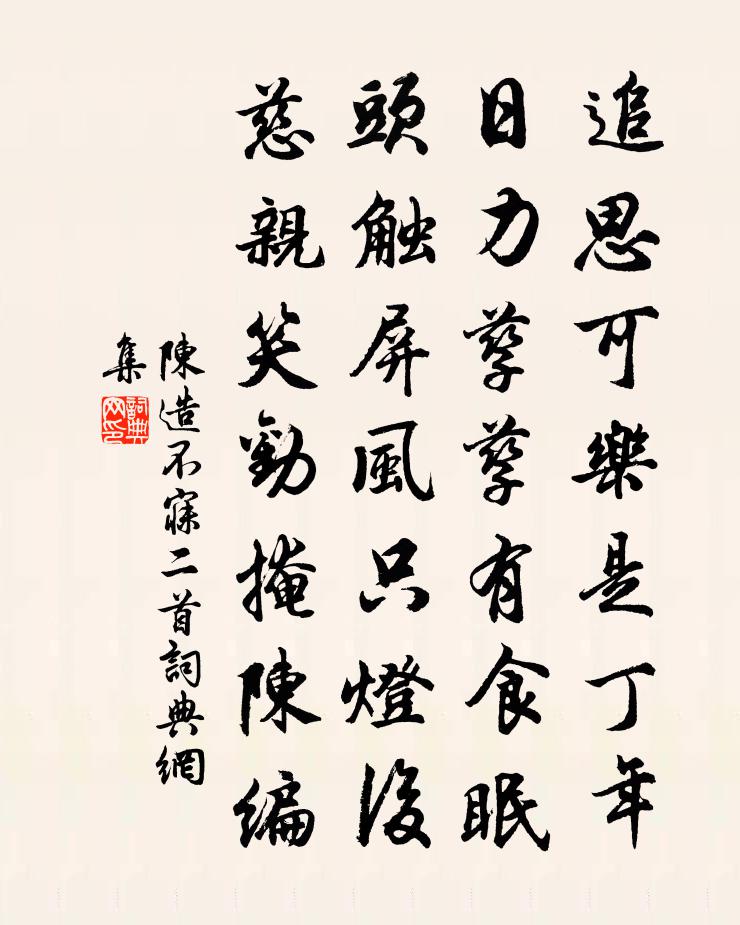 追思可樂是丁年
日力孳孳有食眠
頭触屏風只燈後
慈親笑勸掩陳編
陳造不寐二首詞典網
集
詞典
网